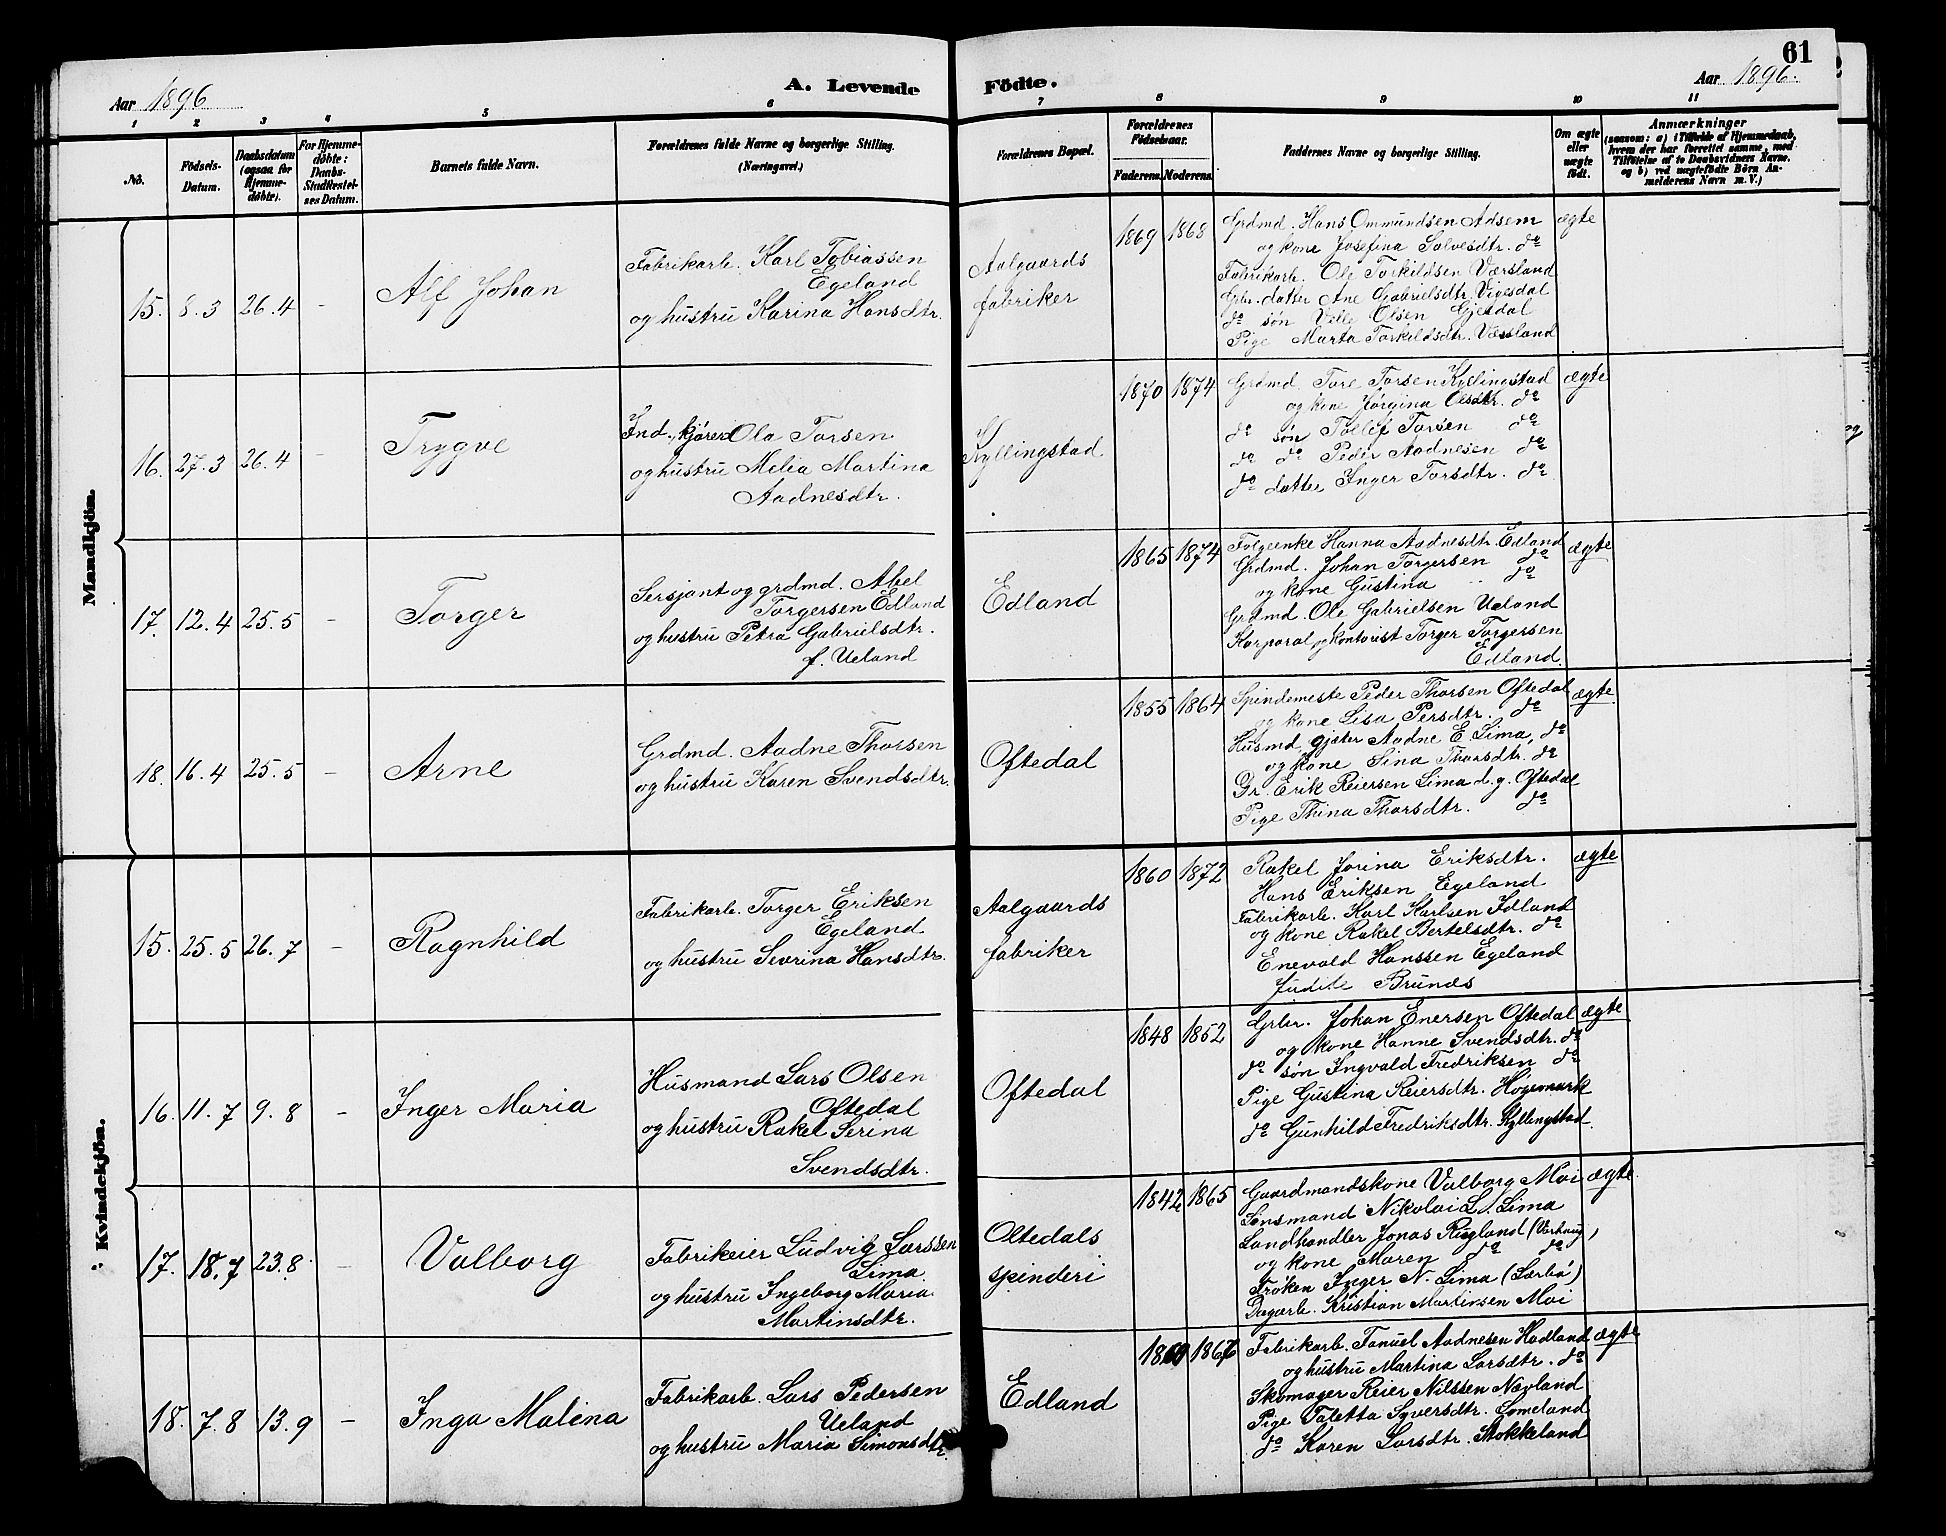 61
Aar 1896
A. Levende Födte.
Aar 1896.
1 2 3 4 5 6 7 8 9 10 11
No.
Födsels-
Datum.
Daabsdatum
(ogsaa for
Hjemme-
døbte).
For Hjemme-
døbte:
Daabs-
Stadfæstel-
ses Datum.
Barnets fulde Navn.
Forældrenes fulde Navne og borgerlige Stilling.
(Næringsvei.)
Forældrenes Bopæl.
Forældrenes
Födselsaar.
Faderens. Moderens.
Faddernes Navne og borgerlige Stilling.
Om ægte
eller
uægte
født.
Anmærkninger
(saasom: a) i Tilfælde af Hjemmedaab,
hvem der har forrettet samme, med
Tilföielse af to Daabsvidners Navne,
og b) ved uægtefödte Börn An-
melderens Navn m. V.)
Mandkjön.
15. 8.3 26.4 -
Alf Johan
Fabrikarb. Karl Tobiassen
Egeland
og hustru Karina Hansdtr.
Aalgaards
fabriker
1869 1868
Grdmd. Hans Ommundsen Adsem
og kone Josefina Salvesdtr. do
Fabrikarb. Ole Torkildsen Værsland
Gbr. datter Ane Gabrielsdtr. Vigesdal
do søn Olsen Gjesdal
Pige Marta Torkildsdtr. Værsland
ægte
16. 27.3 26.4 -
Trygve
Ind., kjører Ola Torsen
og hustru Melia Martina
Aadnesdtr.
Kyllingstad
1870 1874
Grdmd. Tore Torsen Kyllingstad
og kone Jørgina Olsdtr. do
do søn Tollef Torsen do
do do Peder Aadnesen do
do datter Inger Torsdtr. do
ægte
17. 12.4 25.5 -
Torger
Sersjant og grdmd. Abel
Torgersen Edland
og hustru Petra Gabrielsdtr.
f. Ueland
Edland
1865 1874
Folgeenke Hanna Aadnesdtr. Edland
Grdmd. Johan Torgersen do
og kone Gustina do
Grdmd. Ole Gabrielsen Ueland
Korporal og kontorist Torger Torgersen
Edland
ægte
18. 16.4 25.5 -
Arne
Grdmd. Aadne Thorsen
og hustru Karen Svendsdtr.
Oftedal
1855 1864
Spindemeste Peder Thorsen Oftedal
og kone Lisa Persdtr. do
Husmd, gjæter Aadne E. Lima, do
og kone Sina Thorsdtr. do
Gr. Erik Reiersen Lima d. y. Oftedal
Pige Thina Thorsdtr. do
ægte
Kvindekjön.
15. 25.5 26.7 -
Ragnhild
Fabrikarb. Torger Eriksen
Egeland
og hustru Sevrina Hansdtr.
Aalgaards
fabriker
1860 1872
Rakel Jorina Eriksdtr.
Hans Eriksen Egeland
Fabrikarb. Karl Karlsen Idland
og kone Rakel Bertelsdtr. do
Enevald Hanssen Egeland
Judite Brunæs
ægte
16. 11.7 9.8 -
Inger Maria
Husmand Lars Olsen
Oftedal
og hustru Rakel Serina
Svendsdtr.
Oftedal
1848 1852
Gbr. Johan Enersen Oftedal
og kone Hanne Svendsdtr. do
do søn Ingvald Fredriksen do
Pige Gustina Reiersdtr.
do Gunhild Fredriksdtr. Kyllingstad
ægte
17. 18.7 23.8 -
Valborg
Fabrikeier Ludvig Larssen
Lima
og hustru Ingeborg Maria
Martinsdtr.
Oltedals
spinderi
1842 1865
Gaardmandskone Valborg Moi
Lensmand Nikolai L. Lima
Landhandler Jonas Rugland (Varhaug)
og kone Maren do do
Frøken Inger N. Lima (Lærbø)
Dagarb. Kristian Martinsen Moi
ægte
18. 7.8 13.9 -
Inga Malena
Fabrikarb. Lars Pedersen
Ueland
og hustru Maria Simonsdtr.
Edland
1867
Fabrikarb. Tanuel Aadnesen Hadland
og hustru Martina Larsdtr. do
Skomager Reier Nilssen Nævland
Pige Taletta Syversdtr. Lomeland
do Karen Larsdtr. Stokkeland
ægte